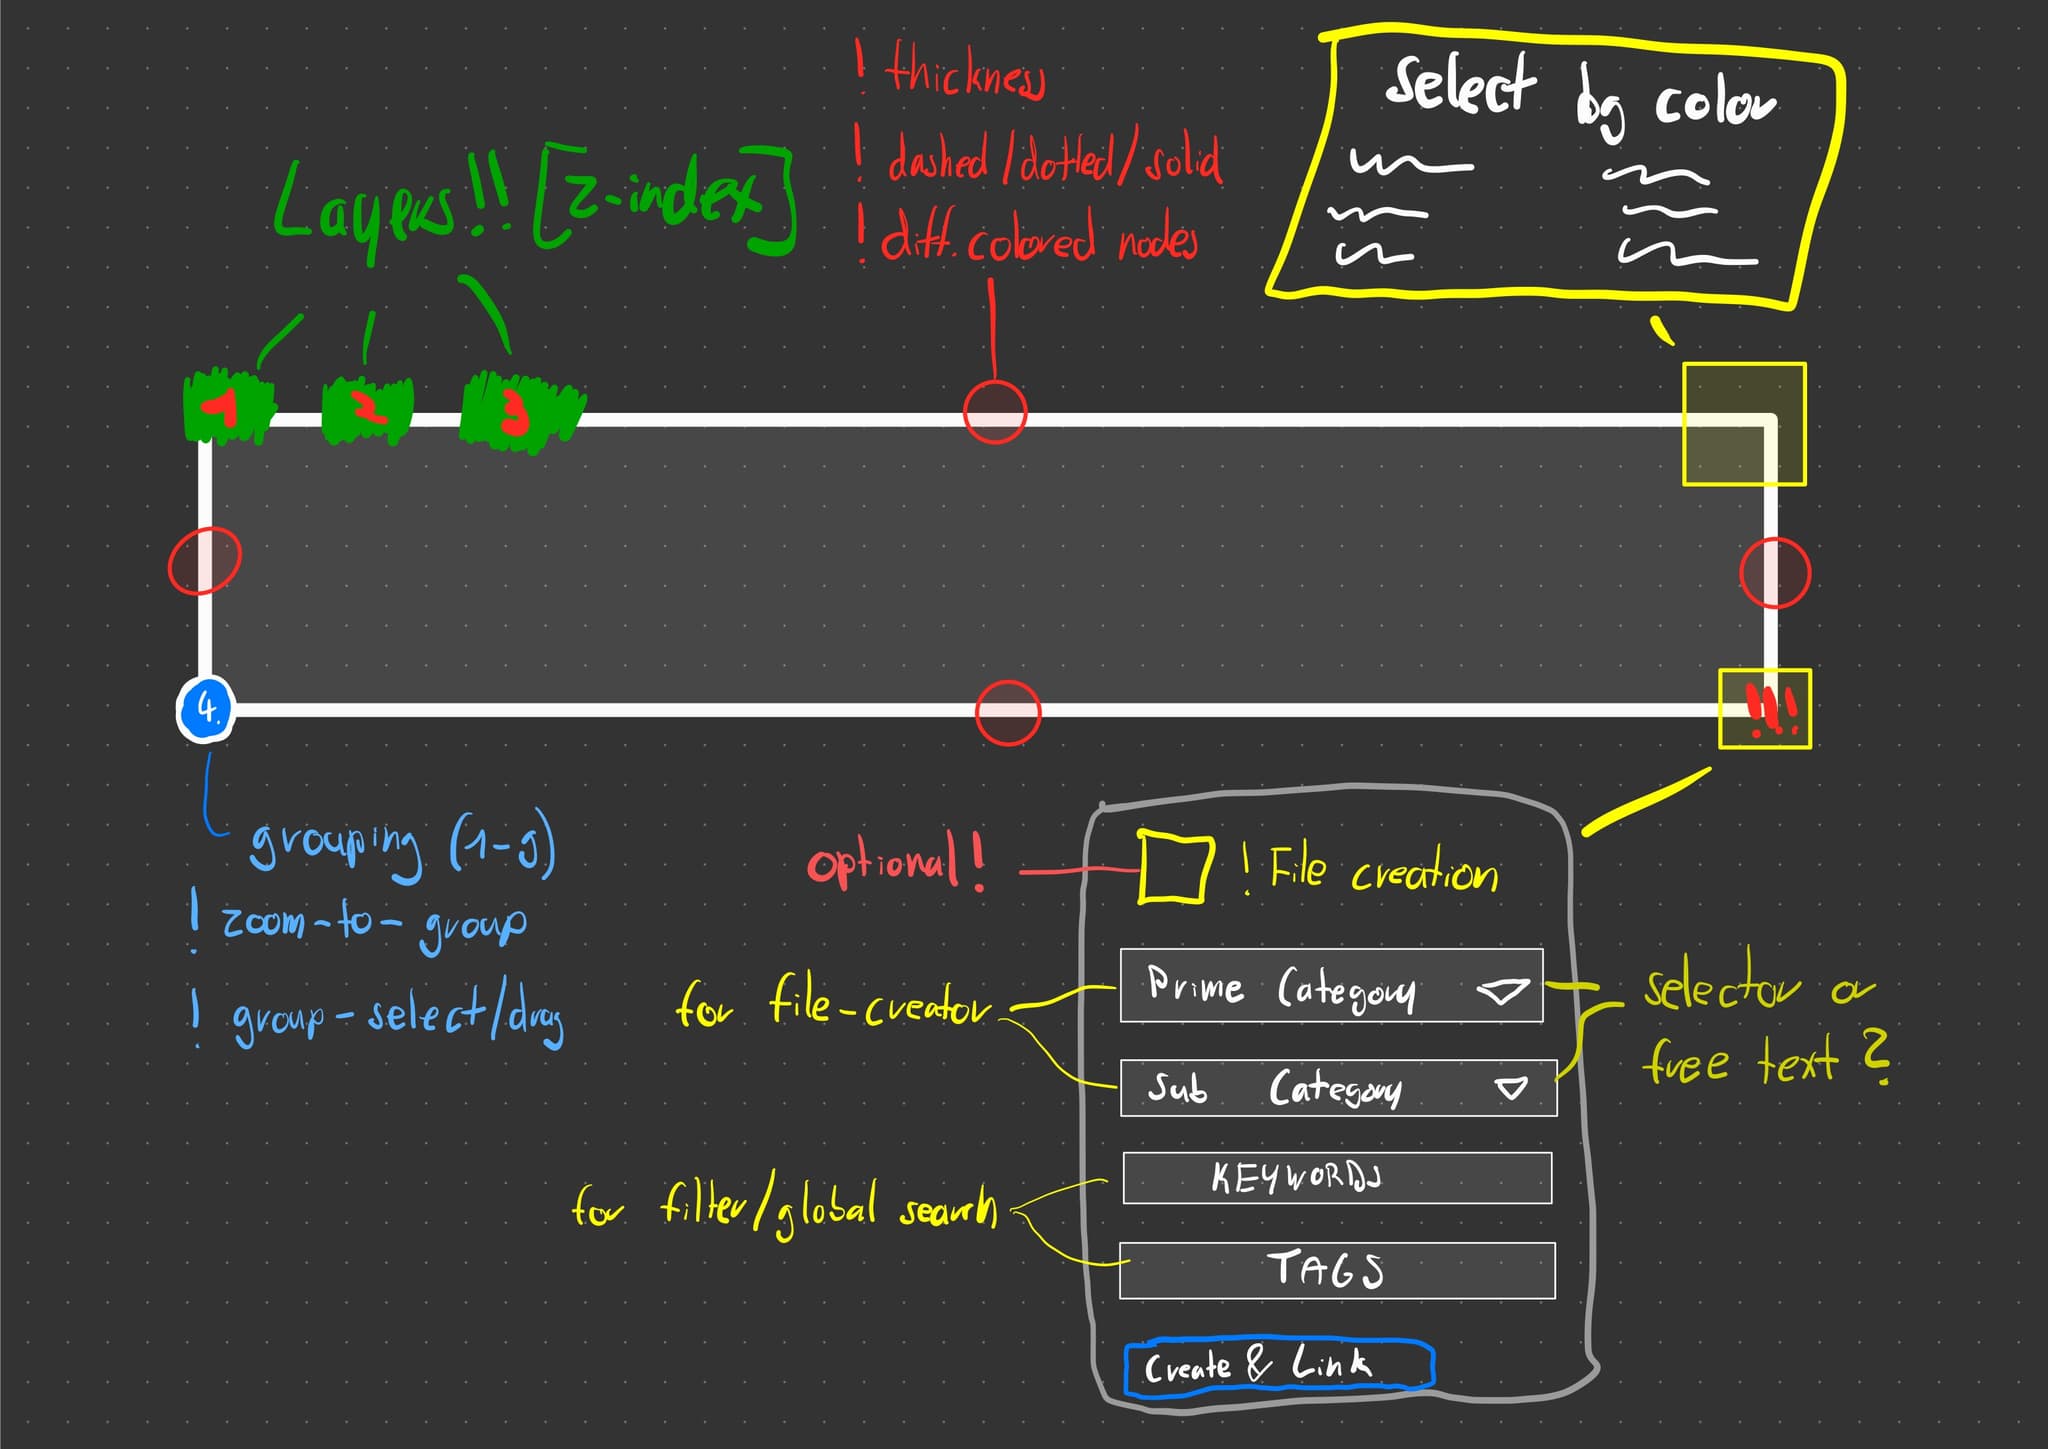 ! thickness
! dashed/dotted/solid
! diff. colored nodes
Select bg color
Layers!! [z-index]
1 2 3
4.
!!!
grouping (1-9)
! zoom-to-group
! group-select/drag
optional!
! File creation
for file-creator
Prime Category
Sub Category
selector or
free text?
for filter/global search
KEYWORDS
TAGS
Create & Link